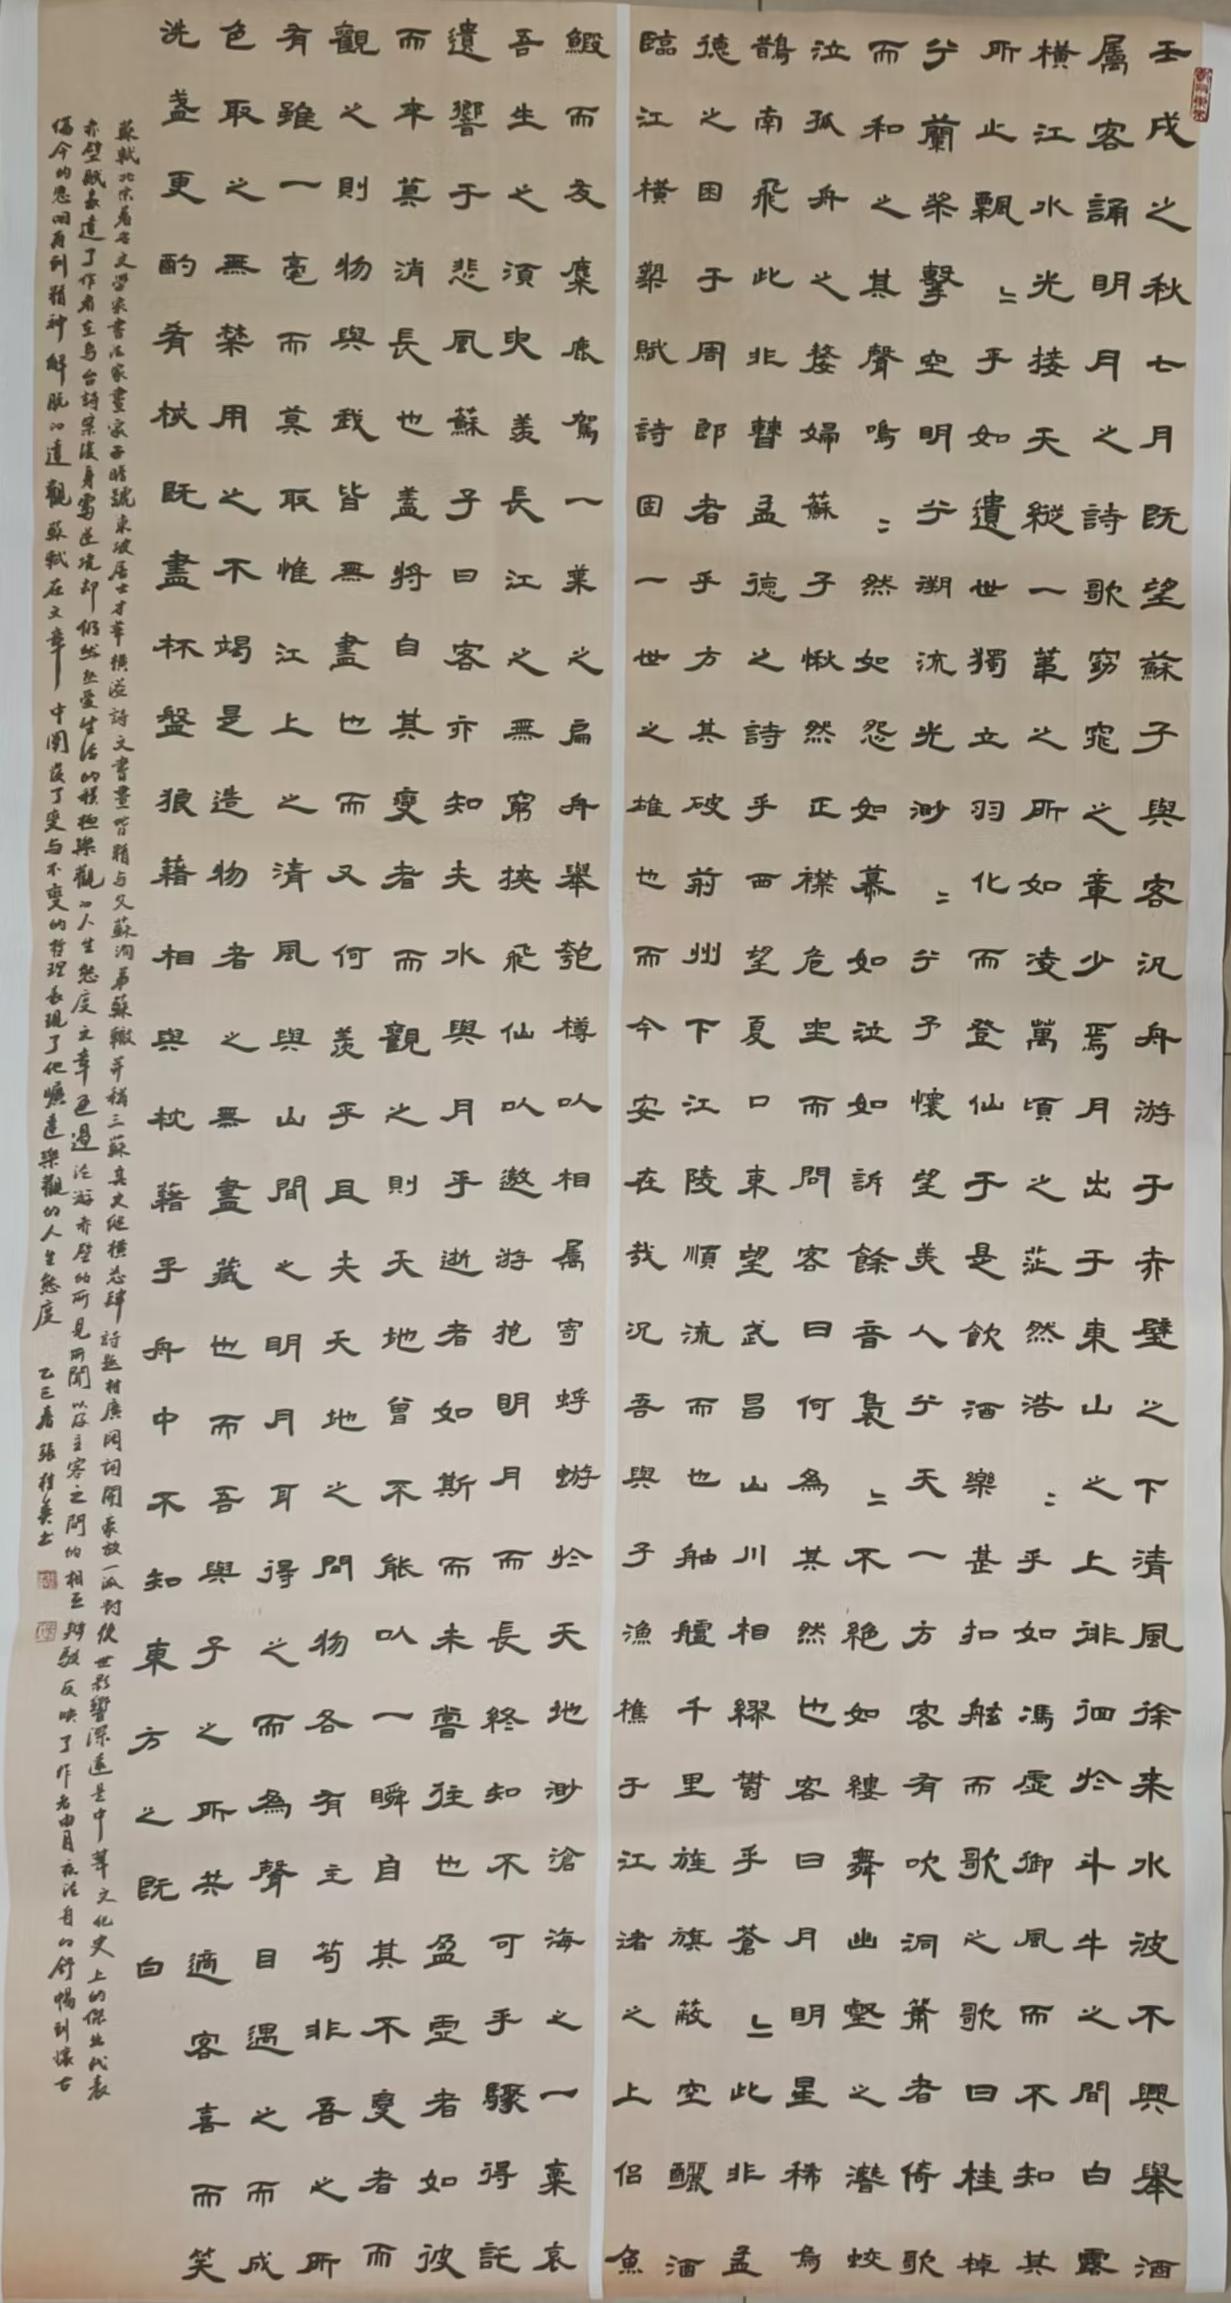 壬戌之秋七月既望蘇子與客汎舟游于赤壁之下清風徐来水波不興舉酒
属客誦明月之詩歌窈窕之章少焉月出于東山之上徘徊於斗牛之間白露
横江水光接天縱一葦之所如凌萬頃之茫然浩〻乎如馮虚御風而不知其
所止飄〻乎如遺世獨立羽化而登仙于是飲酒樂甚扣舷而歌之歌曰桂棹
兮蘭槳擊空明兮溯流光渺〻兮予懷望美人兮天一方客有吹洞簫者倚歌
而和之其聲嗚〻然如怨如慕如泣如訴餘音裊〻不絶如縷舞幽壑之潛蛟
泣孤舟之嫠婦蘇子愀然正襟危坐而問客曰何為其然也客曰月明星稀烏
鵲南飛此非瞽孟德之詩乎西望夏口東望武昌山川相繆鬱乎蒼〻此非孟
德之困于周郎者乎方其破荊州下江陵順流而也舳艫千里旌旗蔽空釃酒
臨江横槊賦詩固一世之雄也而今安在哉况吾與子漁樵于江渚之上侣魚
鰕而友麋鹿駕一葉之扁舟舉匏樽以相属寄蜉蝣於天地渺滄海之一粟哀
吾生之須臾羨長江之無窮挾飛仙以遨游抱明月而長終知不可乎驟得託
遺響于悲風蘇子曰客亦知夫水與月乎逝者如斯而未嘗往也盈虚者如彼
而卒莫消長也蓋將自其變者而觀之則天地曾不能以一瞬自其不變者而
觀之則物與我皆無盡也而又何羨乎且夫天地之間物各有主苟非吾之所
有雖一毫而莫取惟江上之清風與山間之明月耳得之而為聲目遇之而成
色取之無禁用之不竭是造物者之無盡藏也而吾與子之所共適客喜而笑
洗盞更酌肴核既盡杯盤狼藉相與枕藉乎舟中不知東方之既白
蘇軾北宋著名文學家書法家畫家子瞻號東坡居士才華横溢詩文書畫皆精与父蘇洵弟蘇轍并稱三蘇其文縱横恣肆詩題材廣闊詞開豪放一派對後世影響深遠是中華文化史上的傑出代表
赤壁賦表達了作者在烏台詩案後身處逆境却仍然熱愛生活的積極樂觀的人生態度文章通過泛游赤壁的所見所聞以及主客之間的相互辯駁反映了作者由月夜泛舟的舒暢到懷古
傷今的悲咽再到精神解脱的達觀蘇軾在文章中闡發了變与不變的哲理表現了他曠達樂觀的人生態度 乙巳春張桂英书